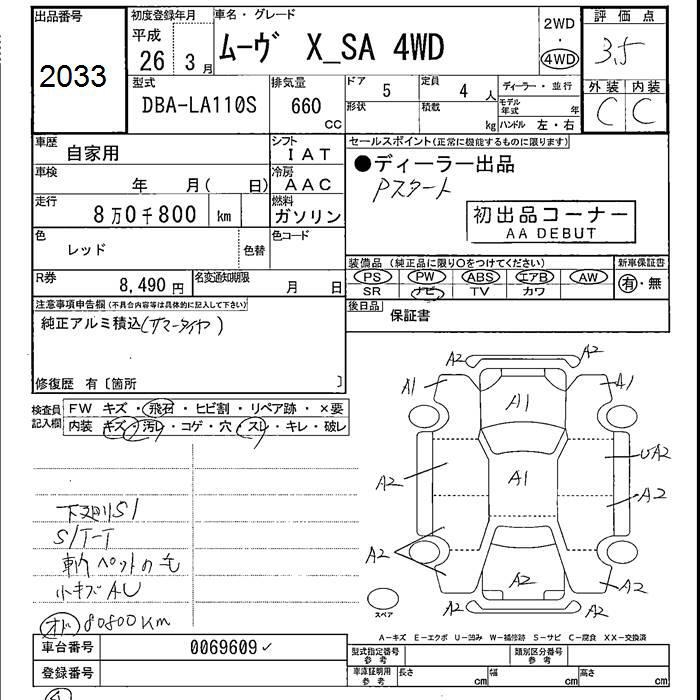 出品番号
2033
初度登録年月
平成
26 3月
車名・グレード
ムーヴ X_SA 4WD
2WD
・
4WD
評価点
3.5
外装 内装
C C
型式
DBA-LA110S
排気量
660
cc
ドア 5
定員 4 人
形状
積載
kg
ディーラー・並行
モデル年式 年
ハンドル 左・右
車歴
自家用
シフト
IAT
車検
年 月( 日)
冷房
AAC
走行
8万0千800 km
燃料
ガソリン
色
レッド
色替
色コード
R券
8,490円
名変通知期限
月 日
セールスポイント(正常に機能するものに限ります)
●ディーラー出品
Pスタート
初出品コーナー
AA DEBUT
装備品(純正品に限り○をつけてください)
新車保証書
PS PW ABS エアB AW
SR ナビ TV カワ
有・無
後日品
保証書
注意事項申告欄(不具合内容等は具体的に記入して下さい)
純正アルミ積込(サマータイヤ)
修復歴 有〔箇所 〕
検査員
記入欄
FW キズ・飛石・ヒビ割・リペア跡・×要
内装 キズ・汚レ・コゲ・穴・スレ・キレ・破レ
下廻りS1
S/T-T
車内ペットの毛
小キズAU
オド 80800Km
A2 A2
A1 A1 A1
A2 A1 UA2
A2
A2 A2 A2
A2 A2
スペア
A-キズ E-エクボ U-凹み W-補修跡 S-サビ C-腐食 XX-交換済
車台番号
0069609✓
登録番号
型式指定番号
参考
類別区分番号
参考
車庫証明用
参考
長さ cm
幅 cm
高さ cm